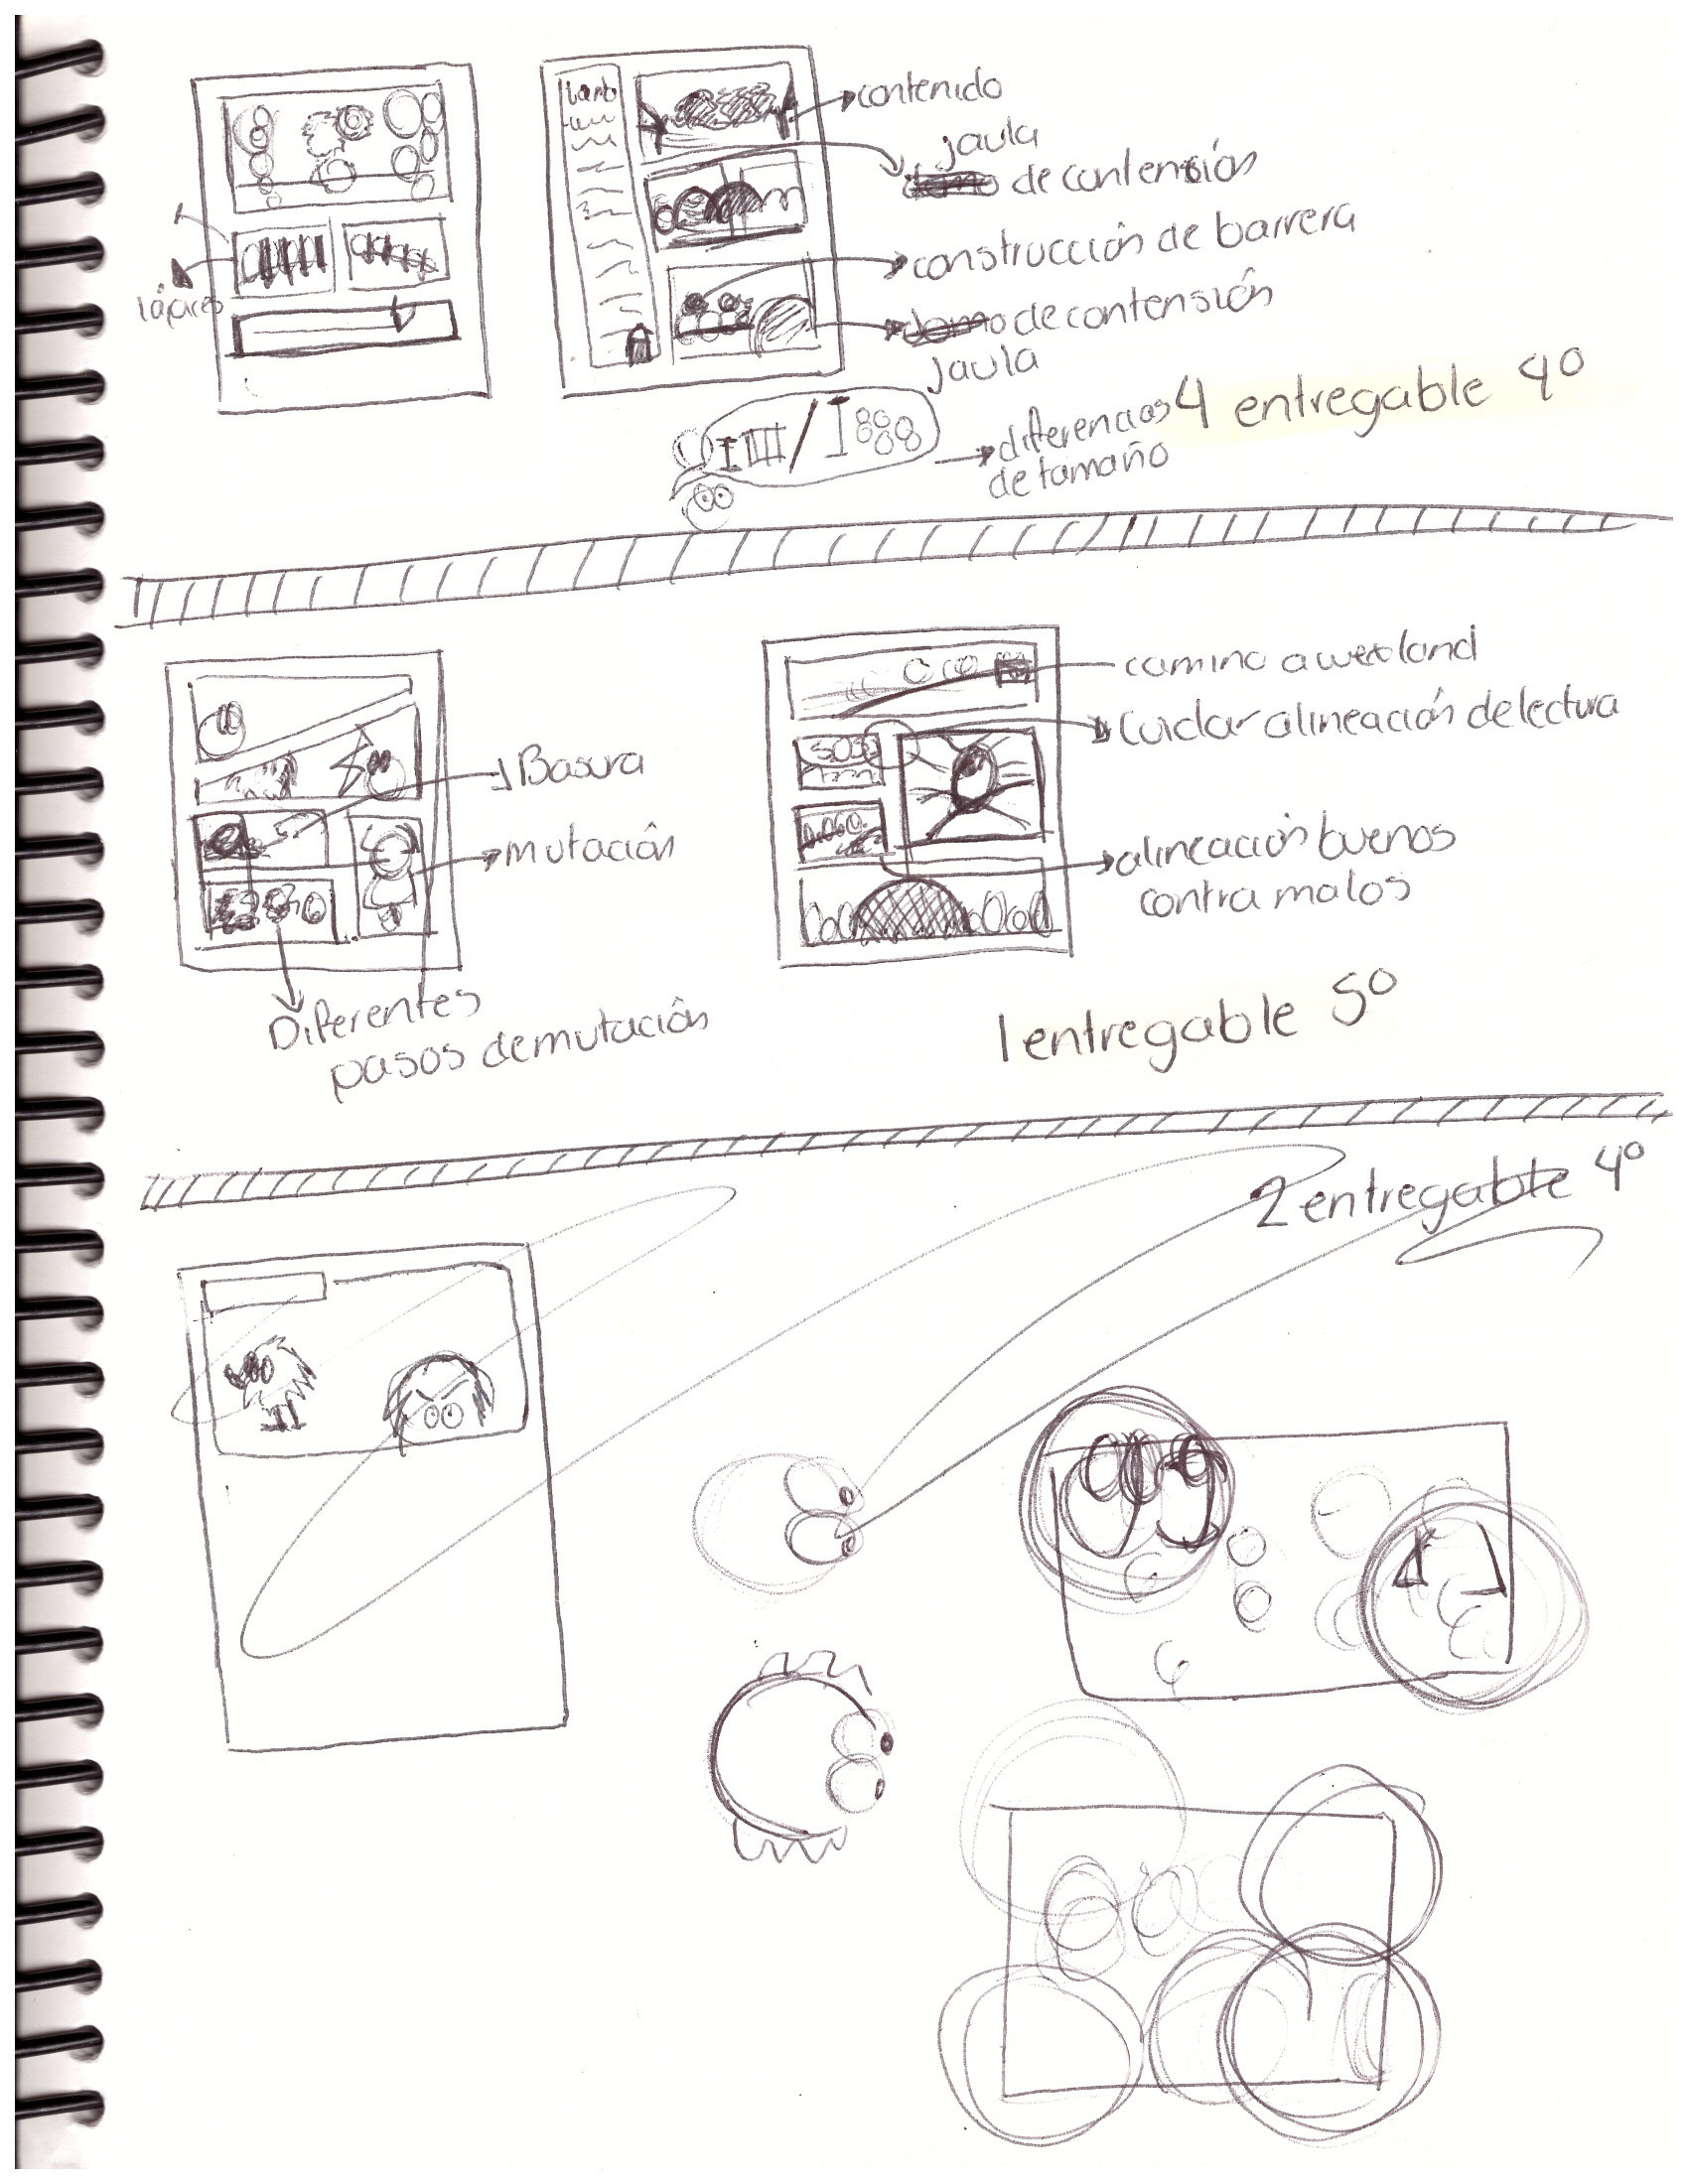 contenido
jaula
de contensión
construcción de barrera
de contensión
jaula
lápices
diferencias
de tamaño
4 entregable 4º
Basura
mutación
Diferentes
pasos de mutación
camino a
cuidar alineación de lectura
S.O.S
alineación buenos
contra malos
1 entregable 5º
2 entregable 4º